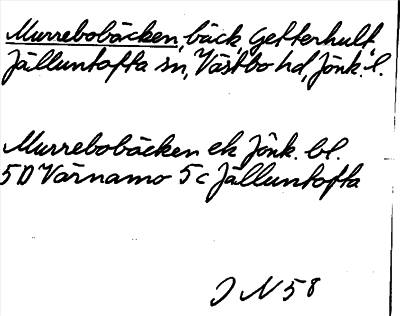 Murrebobäcken, bäck, Getterhult,
Jälluntofta sn, Västbo hd, Jönk. l.
Murrebobäcken ek Jönk. bl.
5D Värnamo 5c Jälluntofta
J N 58